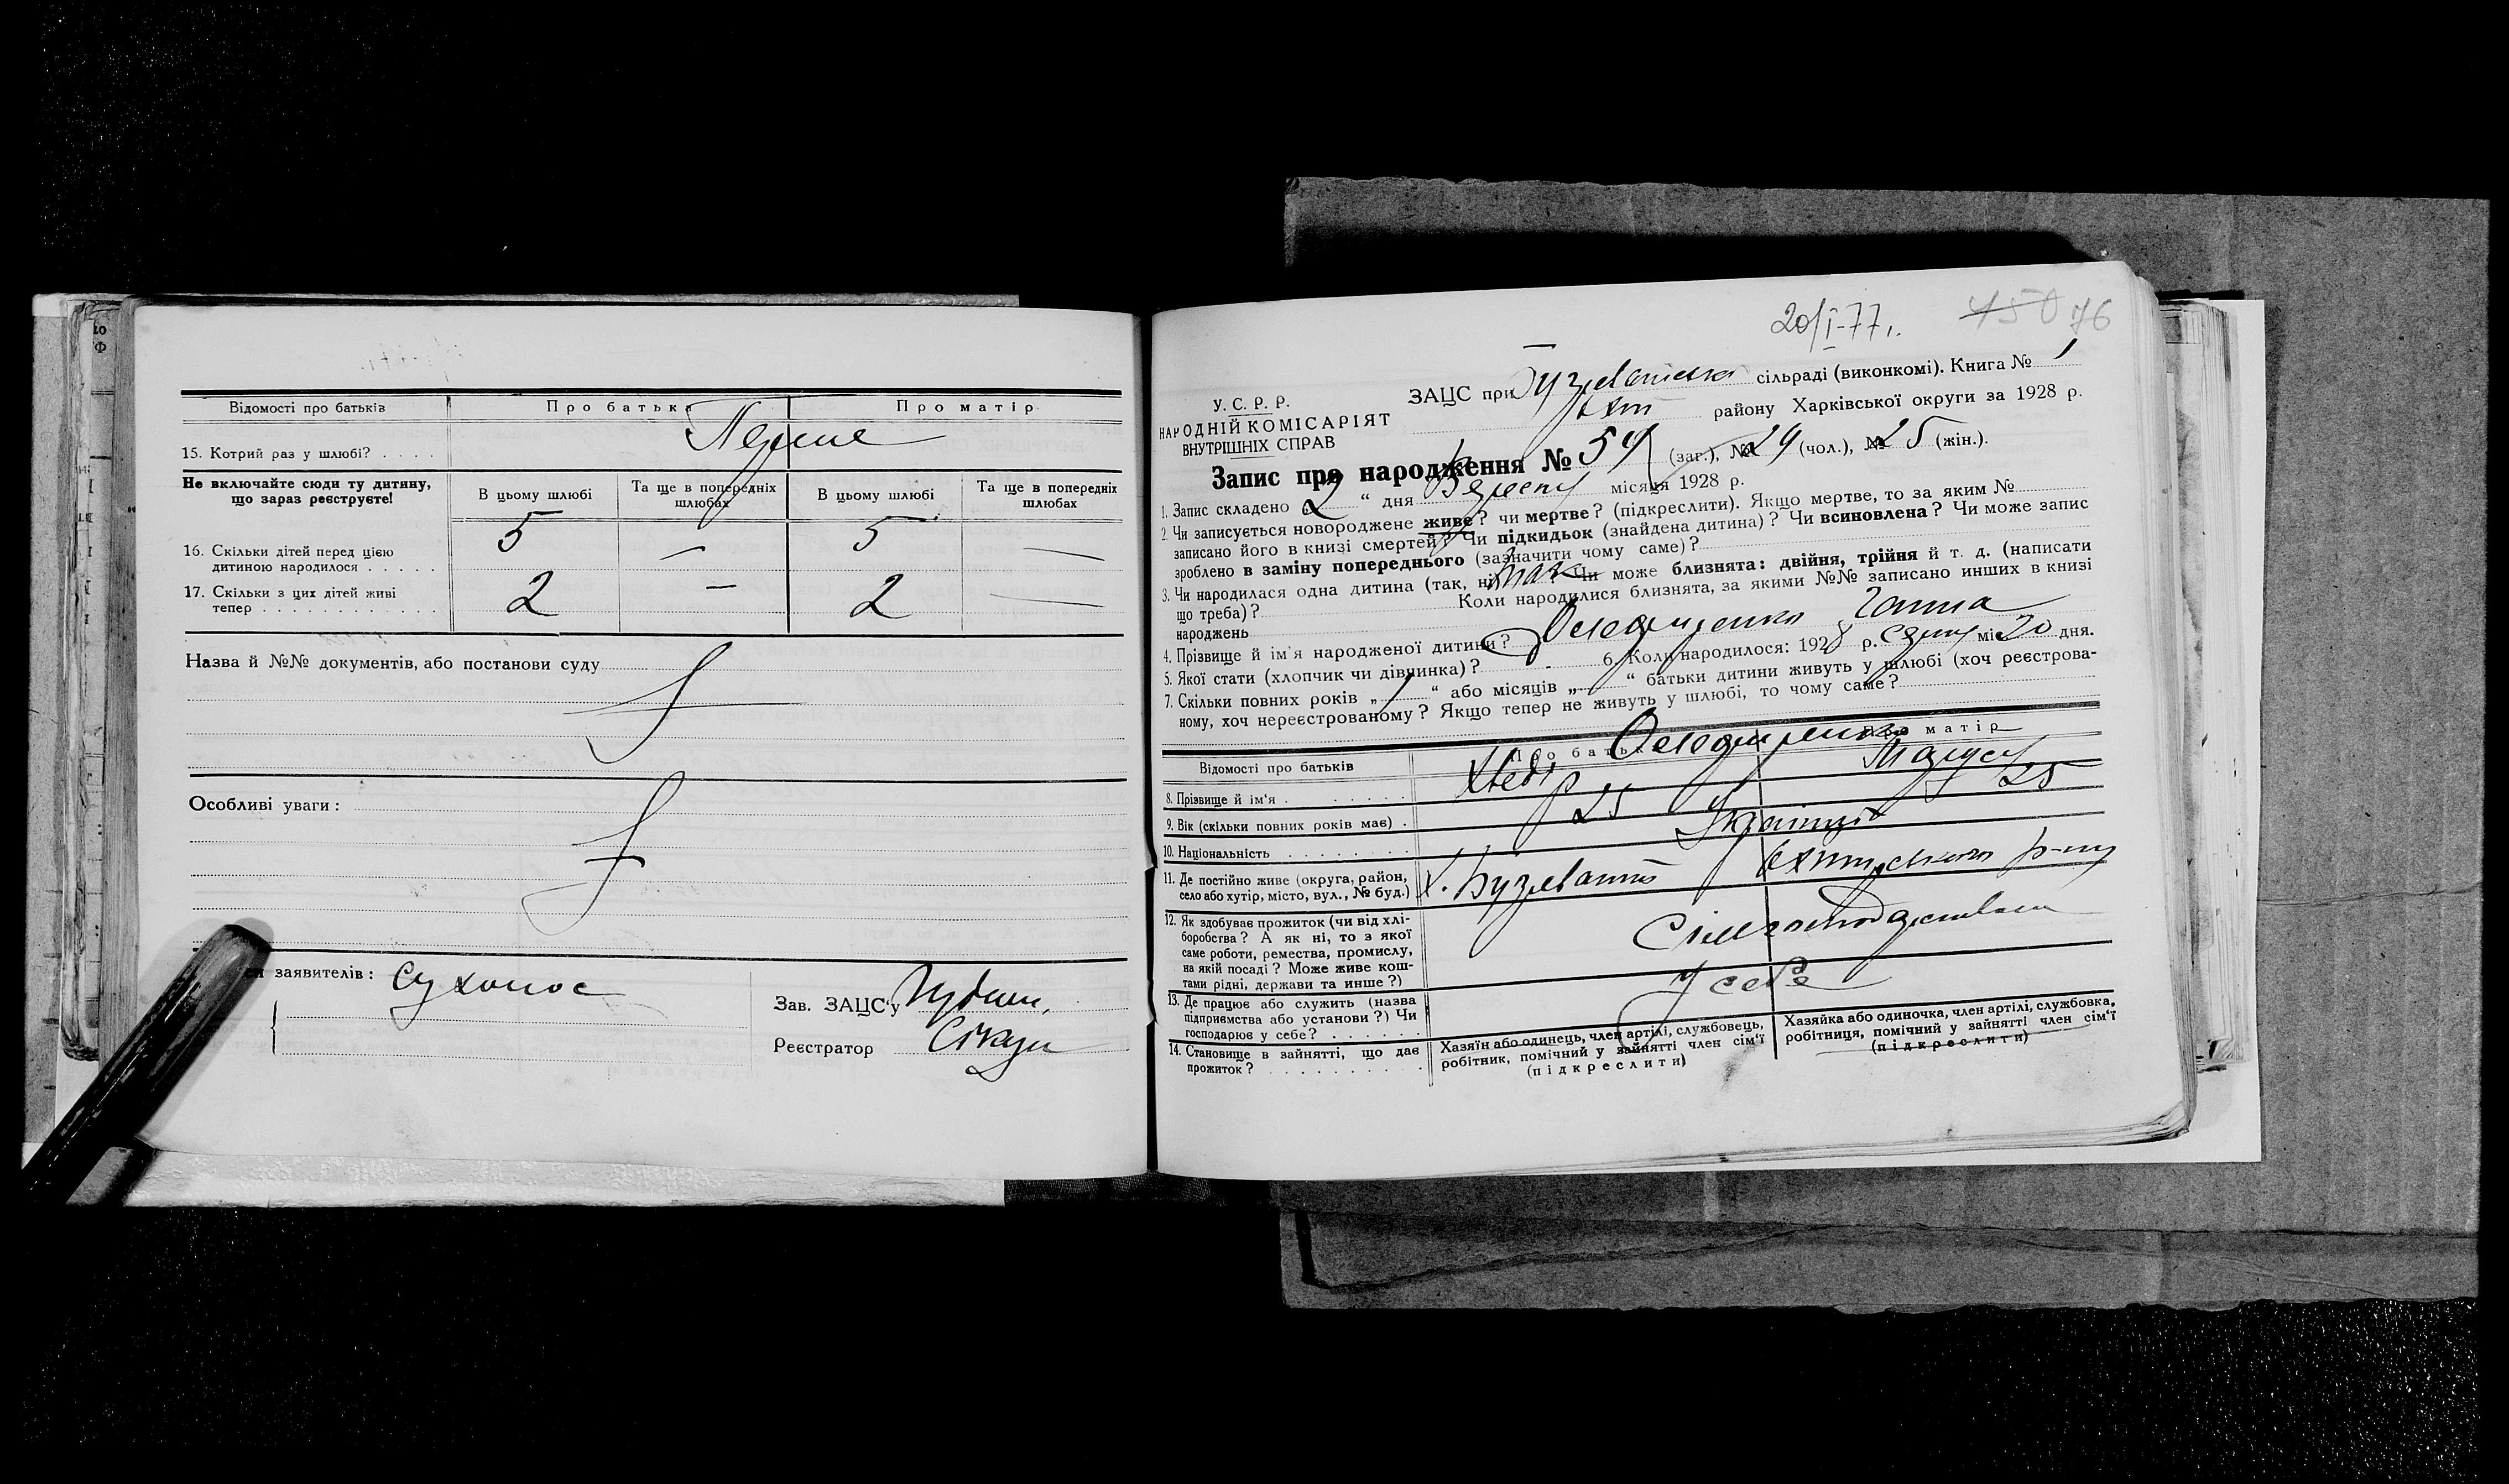 Відомості про батьків Про батька Про матір
15. Котрий раз у шлюбі? . . . . Перше
Не включайте сюди ту дитину, що зараз реєструєте!
В цьому шлюбі Та ще в попередніх шлюбах В цьому шлюбі Та ще в попередніх шлюбах
16. Скільки дітей перед цією
дитиною народилося . . . . . 5 — 5 —
17. Скільки з цих дітей живі
тепер . . . . . . . . . . . . 2 — 2 —
Назва й №№ документів, або постанови суду
Особливі уваги:
заявителів: Сухонос
Зав. ЗАЦС'у
Реєстратор
20/I-77.
450 76
У. С. Р. Р.
НАРОДНІЙ КОМІСАРІЯТ
ВНУТРІШНІХ СПРАВ
ЗАЦС при сільраді (виконкомі). Книга № 1
Охт району Харківської округи за 1928 р.
Запис про народження № 54 (заг.), № 29 (чол.), № 25 (жін.).
1. Запис складено 2 “ дня Вересня місяця 1928 р.
2. Чи записується новороджене живе? чи мертве? (підкреслити). Якщо мертве, то за яким №
записано його в книзі смертей? Чи підкидьок (знайдена дитина)? Чи всиновлена? Чи може запис
зроблено в заміну попереднього (зазначити чому саме)?
3. Чи народилася одна дитина (так, ні) так Чи може близнята: двійня, трійня й т. д. (написати
що треба)? Коли народилися близнята, за якими №№ записано инших в книзі
народжень
4. Прізвище й ім'я народженої дитини? Ганна
5. Якої стати (хлопчик чи дівчинка)? - 6. Коли народилося: 1928 р. Серпн міс 20 дня.
7. Скільки повних років „ 1 “ або місяців „ “ батьки дитини живуть у шлюбі (хоч реєстрова-
ному, хоч нереєстрованому? Якщо тепер не живуть у шлюбі, то чому саме?
Відомості про батьків Про батька Про матір
8. Прізвище й ім'я . . . . . . . Хведір Маруся
9. Вік (скільки повних років має) . 25 25
10. Національність . . . . . . . . Українці
11. Де постійно живе (округа, район,
село або хутір, місто, вул., № буд.) х. р-ну
12. Як здобуває прожиток (чи від хлі-
боробства? А як ні, то з якої
саме роботи, ремества, промислу,
на якій посаді? Може живе кош-
тами рідні, держави та инше?) Сільгосподарством
13. Де працює або служить (назва
підприємства або установи?) Чи
господарює у себе? . . . . . У себе
14. Становище в зайнятті, що дає
прожиток? . . . . . . . . . .
Хазяїн або одинець, член артілі, службовець,
робітник, помічний у зайнятті член сім'ї
(підкреслити)
Хазяйка або одиночка, член артілі, службовка,
робітниця, помічний у зайнятті член сім'ї
(підкреслити)